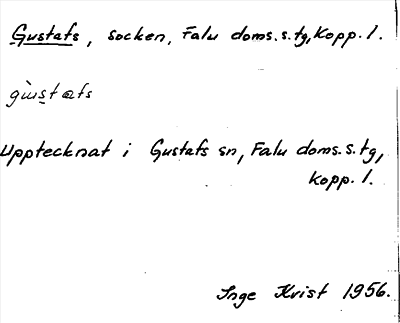 Gustafs, socken, Falu doms.s.tg, Kopp. l.
gùstafs
Upptecknat i Gustafs sn, Falu doms.s.tg,
Kopp. l.
Inge Kvist 1956.